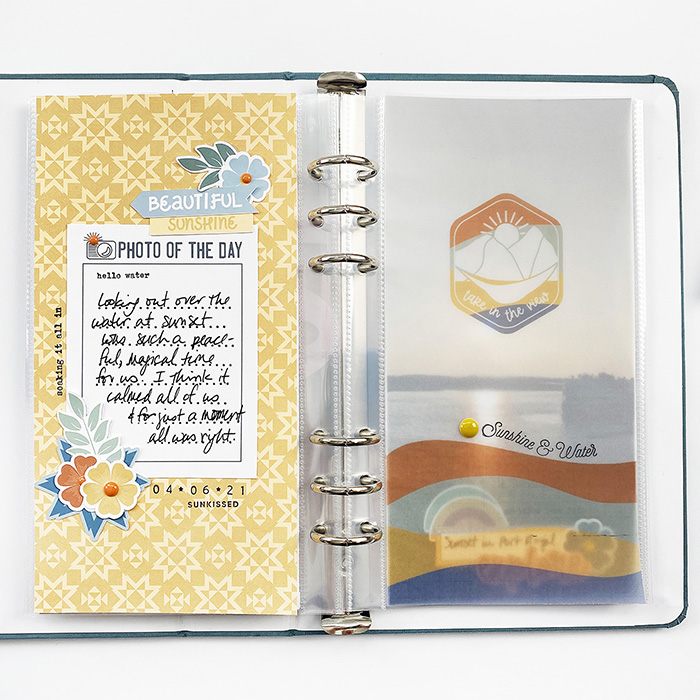 BEAUTIFUL
SUNSHINE
PHOTO OF THE DAY
hello water
Looking out over the
water at sunset...
was such a peace-
ful, magical time...
for us... I think it
calmed all of us...
& for just a moment
all was right.
soaking it all in
04*06*21
SUNKISSED
take in the view
Sunshine & Water
Sunset in Port